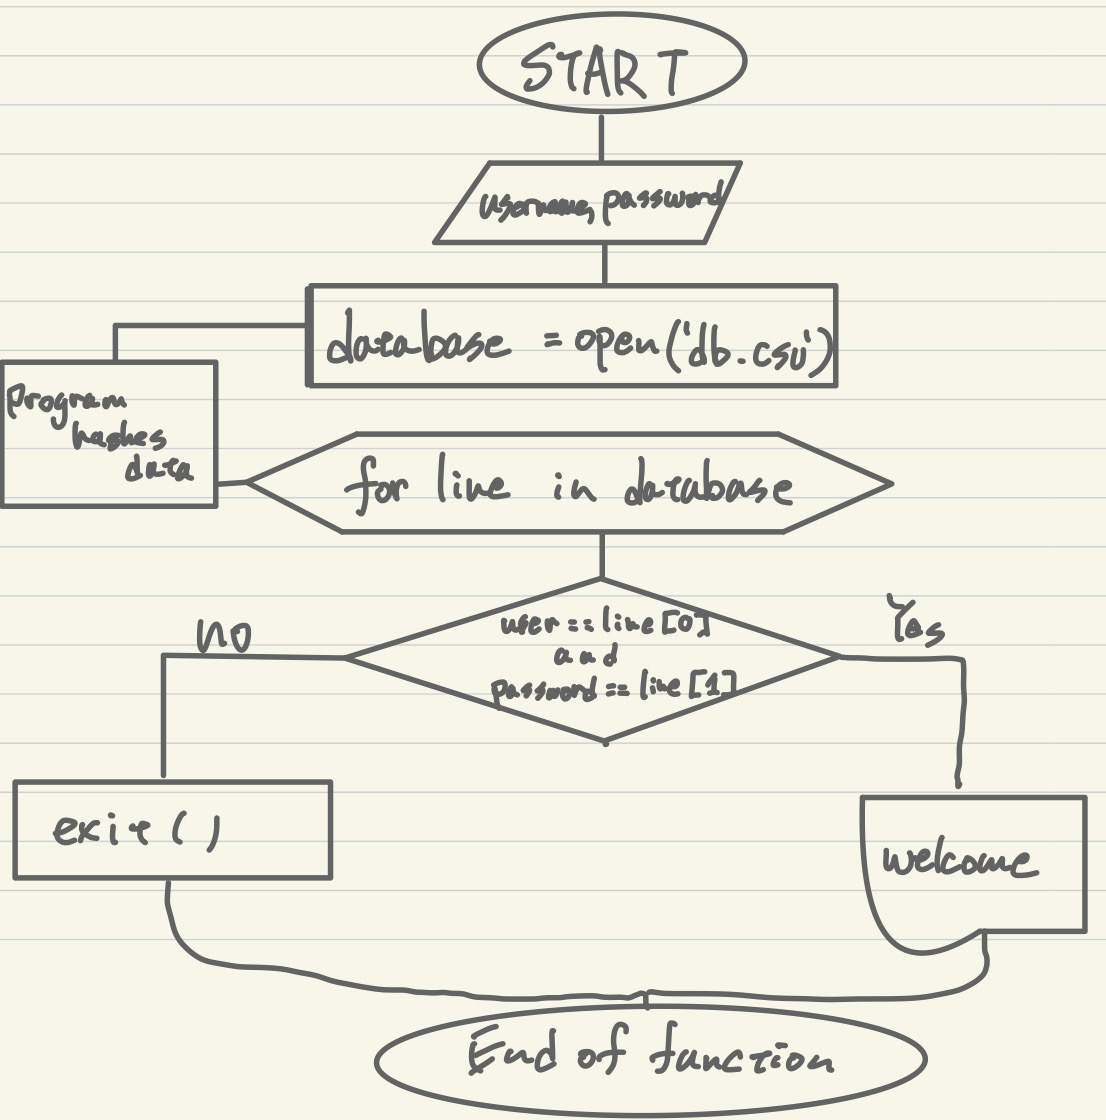 START
username, password
database = open('db.csv')
program
hashes
data
for line in database
user == line [0]
and
password == line [1]
NO
Yes
exit ()
welcome
End of function